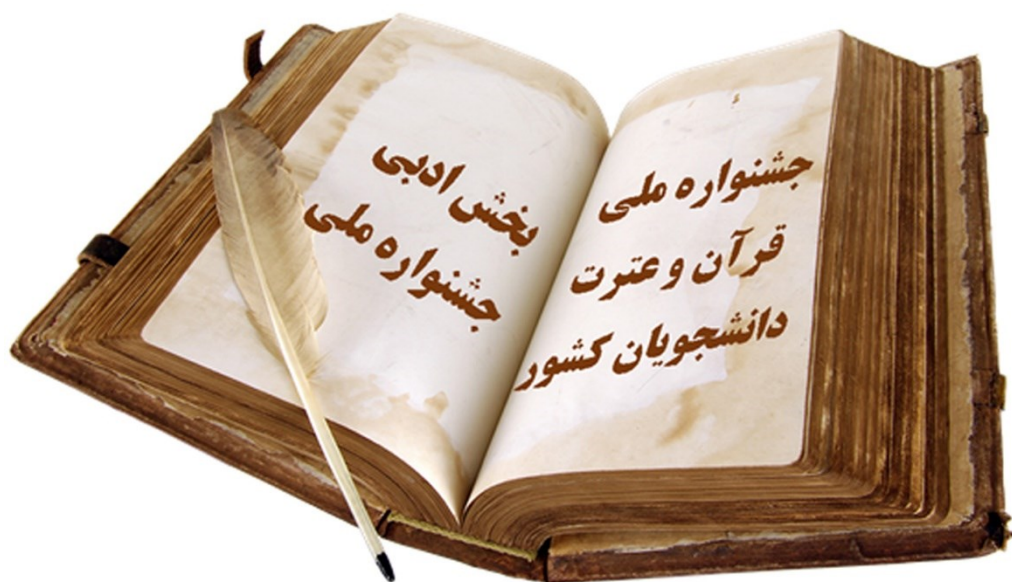 جشنواره ملی
قرآن و عترت
دانشجویان کشور
بخش ادبی
جشنواره ملی